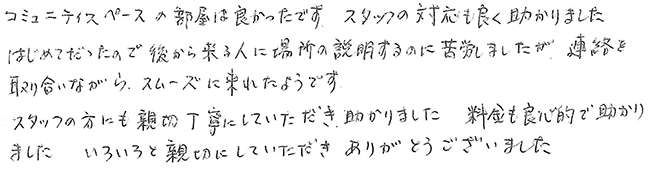 コミュニティスペースの部屋は良かったです スタッフの対応も良く助かりました
はじめてだったので後から来る人に場所の説明するのに苦労しましたが、連絡を
取り合いながら、スムーズに来れたようです
スタッフの方にも親切丁寧にしていただき、助かりました 料金も良心的で助かり
ました いろいろと親切にしていただき ありがとうございました